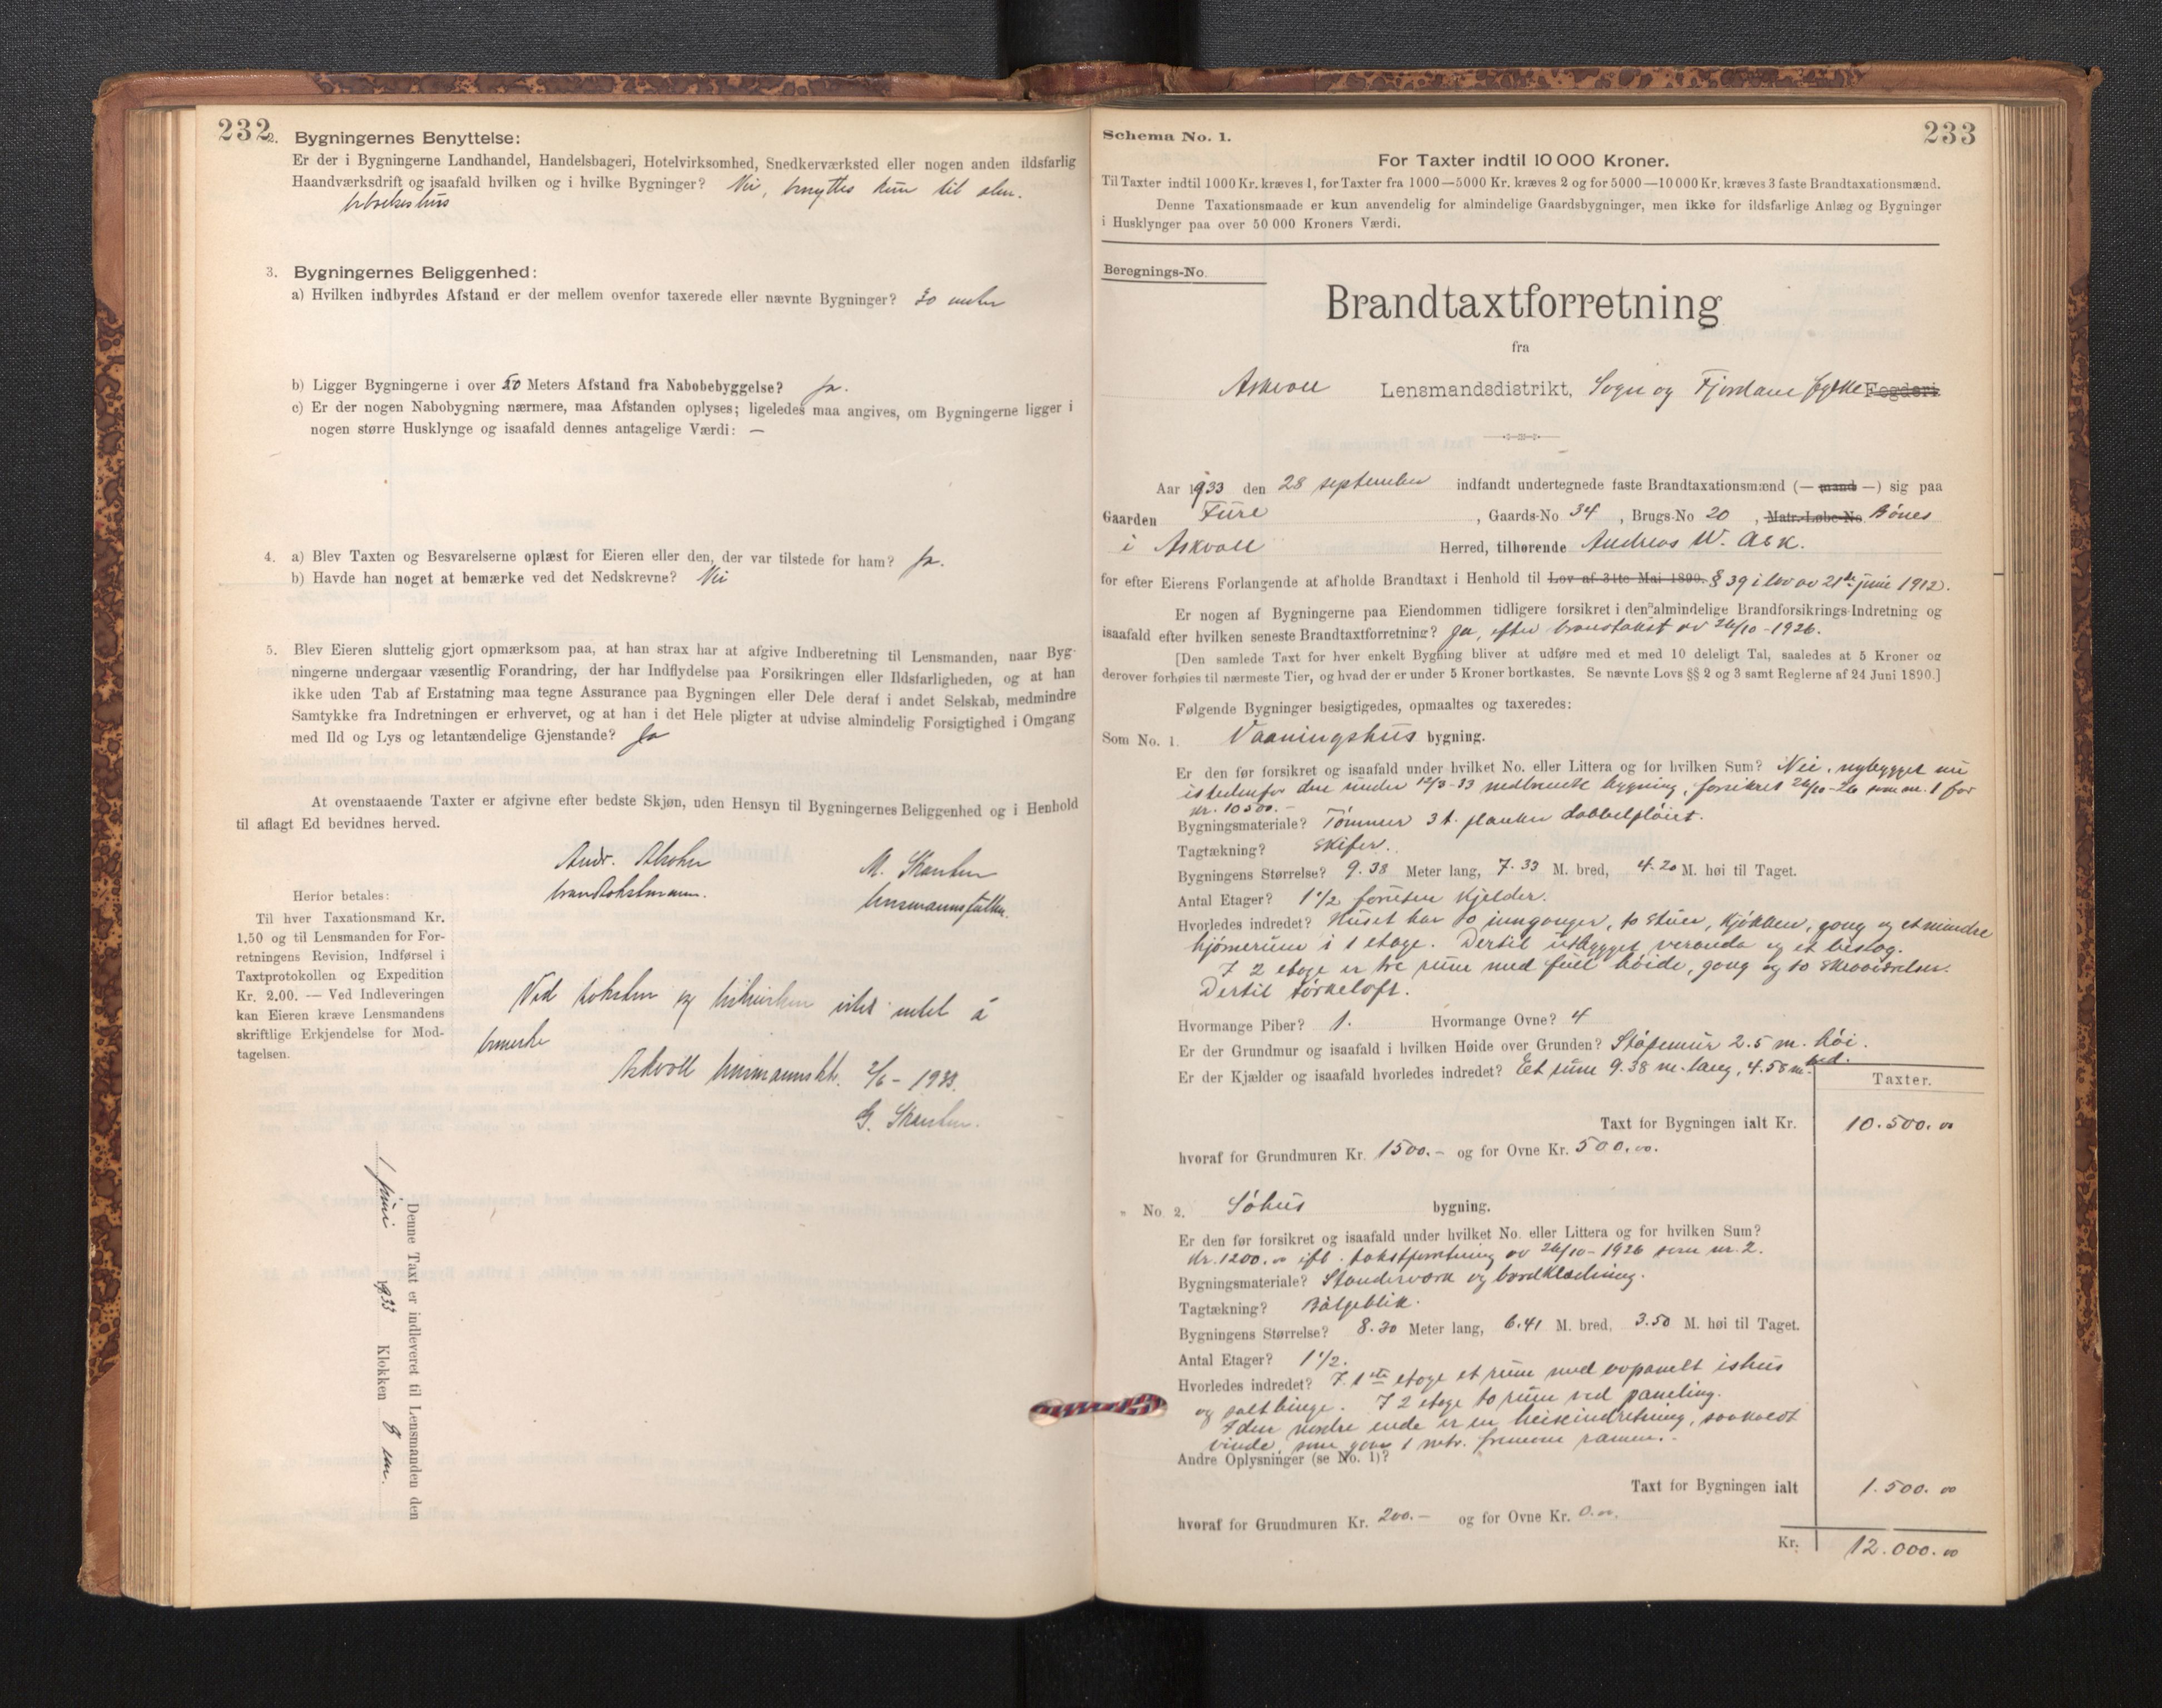 232
2. Bygningernes Benyttelse:
Er der i Bygningerne Landhandel, Handelsbageri, Hotelvirksomhed, Snedkerværksted eller nogen anden ildsfarlig
Haandværksdrift og isaafald hvilken og i hvilke Bygninger? Nei, benyttes kun til alm.
3. Bygningernes Beliggenhed:
a) Hvilken indbyrdes Afstand er der mellem ovenfor taxerede eller nævnte Bygninger? 30 meter
b) Ligger Bygningerne i over 50 Meters Afstand fra Nabobebyggelse? Ja.
c) Er der nogen Nabobygning nærmere, maa Afstanden oplyses; ligeledes maa angives, om Bygningerne ligger i
nogen større Husklynge og isaafald dennes antagelige Værdi: —
4. a) Blev Taxten og Besvarelserne oplæst for Eieren eller den, der var tilstede for ham? Ja.
b) Havde han noget at bemærke ved det Nedskrevne? Nei
5. Blev Eieren sluttelig gjort opmærksom paa, at han strax har at afgive Indberetning til Lensmanden, naar Byg-
ningerne undergaar væsentlig Forandring, der har Indflydelse paa Forsikringen eller Ildsfarligheden, og at han
ikke uden Tab af Erstatning maa tegne Assurance paa Bygningen eller Dele deraf i andet Selskab, medmindre
Samtykke fra Indretningen er erhvervet, og at han i det Hele pligter at udvise almindelig Forsigtighed i Omgang
med Ild og Lys og letantændelige Gjenstande? Ja
At ovenstaaende Taxter er afgivne efter bedste Skjøn, uden Hensyn til Bygningernes Beliggenhed og i Henhold
til aflagt Ed bevidnes herved.
Andr.
M. Skarsten
lensmannsfullm.
Herfor betales:
Til hver Taxationsmand Kr.
1.50 og til Lensmanden for For-
retningens Revision, Indførsel i
Taxtprotokollen og Expedition
Kr. 2.00. — Ved Indleveringen
kan Eieren kræve Lensmandens
skriftlige Erkjendelse for Mod-
tagelsen.
Ved taksten og intet å
bemerke
Askvoll lensmannsktr. 2/6 - 1933.
Skarsten.
Denne Taxt er indleveret til Lensmanden den
1 juni 1933 Klokken 8 em.
233
Schema No. 1.
For Taxter indtil 10 000 Kroner.
Til Taxter indtil 1000 Kr. kræves 1, for Taxter fra 1000—5000 Kr. kræves 2 og for 5000—10 000 Kr. kræves 3 faste Brandtaxationsmænd.
Denne Taxationsmaade er kun anvendelig for almindelige Gaardsbygninger, men ikke for ildsfarlige Anlæg og Bygninger
i Husklynger paa over 50 000 Kroners Værdi.
Beregnings-No.
Brandtaxtforretning
fra
Askvoll Lensmandsdistrikt, Sogn og Fjordane fylke Fogderi
Aar 1933 den 28 september indfandt undertegnede faste Brandtaxationsmænd (— mand —) sig paa
Gaarden Fure, Gaards-No 34, Brugs-No 20, Matr.-Løbe-No Bönes
i Askvoll Herred, tilhørende Andreas W. Ask.
for efter Eierens Forlangende at afholde Brandtaxt i Henhold til Lov af 31te Mai 1899. § 39 i lov av 21de juni 1912.
Er nogen af Bygningerne paa Eiendommen tidligere forsikret i den almindelige Brandforsikrings-Indretning og
isaafald efter hvilken seneste Brandtaxtforretning? Ja, efter branntakst av 26/10 - 1926.
[Den samlede Taxt for hver enkelt Bygning bliver at udføre med et med 10 deleligt Tal, saaledes at 5 Kroner og
derover forhøies til nærmeste Tier, og hvad der er under 5 Kroner bortkastes. Se nævnte Lovs §§ 2 og 3 samt Reglerne af 24 Juni 1890.]
Følgende Bygninger besigtigedes, opmaaltes og taxeredes:
Som No. 1. Vaaningshus bygning.
Er den før forsikret og isaafald under hvilket No. eller Littera og for hvilken Sum? Nei, nybygget nu
istedenfor den under 12/3-33 nedbrente bygning, forsikret 26/10-26 som nr. 1 for
kr. 10500.-
Bygningsmateriale? Tömmer 3 t. planker dobbelpløiet.
Tagtækning? Skifer.
Bygningens Størrelse? 9.38 Meter lang, 7.33 M. bred, 4.20 M. høi til Taget.
Antal Etager? 1 1/2 foruten kjelder.
Hvorledes indredet? Huset har to innganger, to stuer, kjökken, gang og et mindre
hjörnerum i 1 etage. Dertil utbygget veranda og et bislag.
I 2 etage er tre rum med full höide, gang og to
Dertil törkeloft.
Hvormange Piber? 1. Hvormange Ovne? 4
Er der Grundmur og isaafald i hvilken Høide over Grunden? Stöpemur 2.5 m. höi.
Er der Kjælder og isaafald hvorledes indredet? Et rum 9.38 m. lang, 4.58 m. bred.
Taxter.
Taxt for Bygningen ialt Kr. 10.500.00
hvoraf for Grundmuren Kr. 1500.- og for Ovne Kr. 500.00.
" No. 2. Söhus bygning.
Er den før forsikret og isaafald under hvilket No. eller Littera og for hvilken Sum?
Kr. 1200.00 ifl. takstforretning av 26/10 - 1926 som nr. 2.
Bygningsmateriale? Standerverk og bordklædning.
Tagtækning? Bölgeblik.
Bygningens Størrelse? 8.30 Meter lang, 6.41 M. bred, 3.50 M. høi til Taget.
Antal Etager? 1 1/2.
Hvorledes indredet? I 1ste etage et rum med avpanelt ishus
og saltbinge. I 2 etage to rum ved paneling.
I den nordre ende er en heiseindretning, saakaldt
vinde, som gaar 1 metr.
Andre Oplysninger (se No. 1)?
Taxt for Bygningen ialt 1.500.00
hvoraf for Grundmuren Kr. 200.- og for Ovne Kr. 0.00.
Kr. 12.000.00